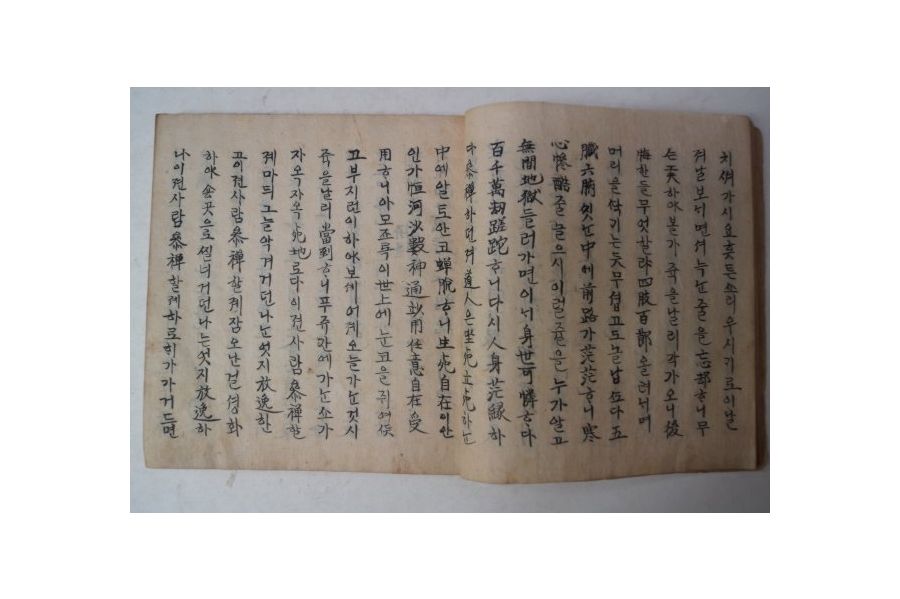 치셔가시요흣튼소리우시기로이날
저날보너면셔늑는줄을忘却ᄒᆞ니무
ᄉᆞᆫ것하야볼가죽을날리각가오니後
悔한들무엇할랴四肢百節올려너며
머리을삭기는듯무셥고도놀납또다五
臟六腑엿는中에前路가茫茫ᄒᆞ니寒
心慘酷쥴늘으시이럴쥴을누가알고
無間地獄들러가면이너身世可憐ᄒᆞ다
百千萬劫蹉跎ᄒᆞ니다시人身茫緣하
다參禪하던져道人은坐死立死하는
中에알토안코蟬脫ᄒᆞ니生死自在이안
인가恒河沙數神通妙用任意自在受
用ᄒᆞ니아모조록이世上에눈코을쥐여
고부지런이하야보세어제오늘가는것시
쥭을날리當到ᄒᆞ니푸쥬간에가는소가
자옥자옥死地로다이젼사람參禪할
제마듸그늘악겨거던나는엇지放逸한
고이젼사람參禪할제잠오난걸셩화
하야숑곳으로찔너거던나는엇지放逸하
나이젼사람參禪할제하로히가가거드면